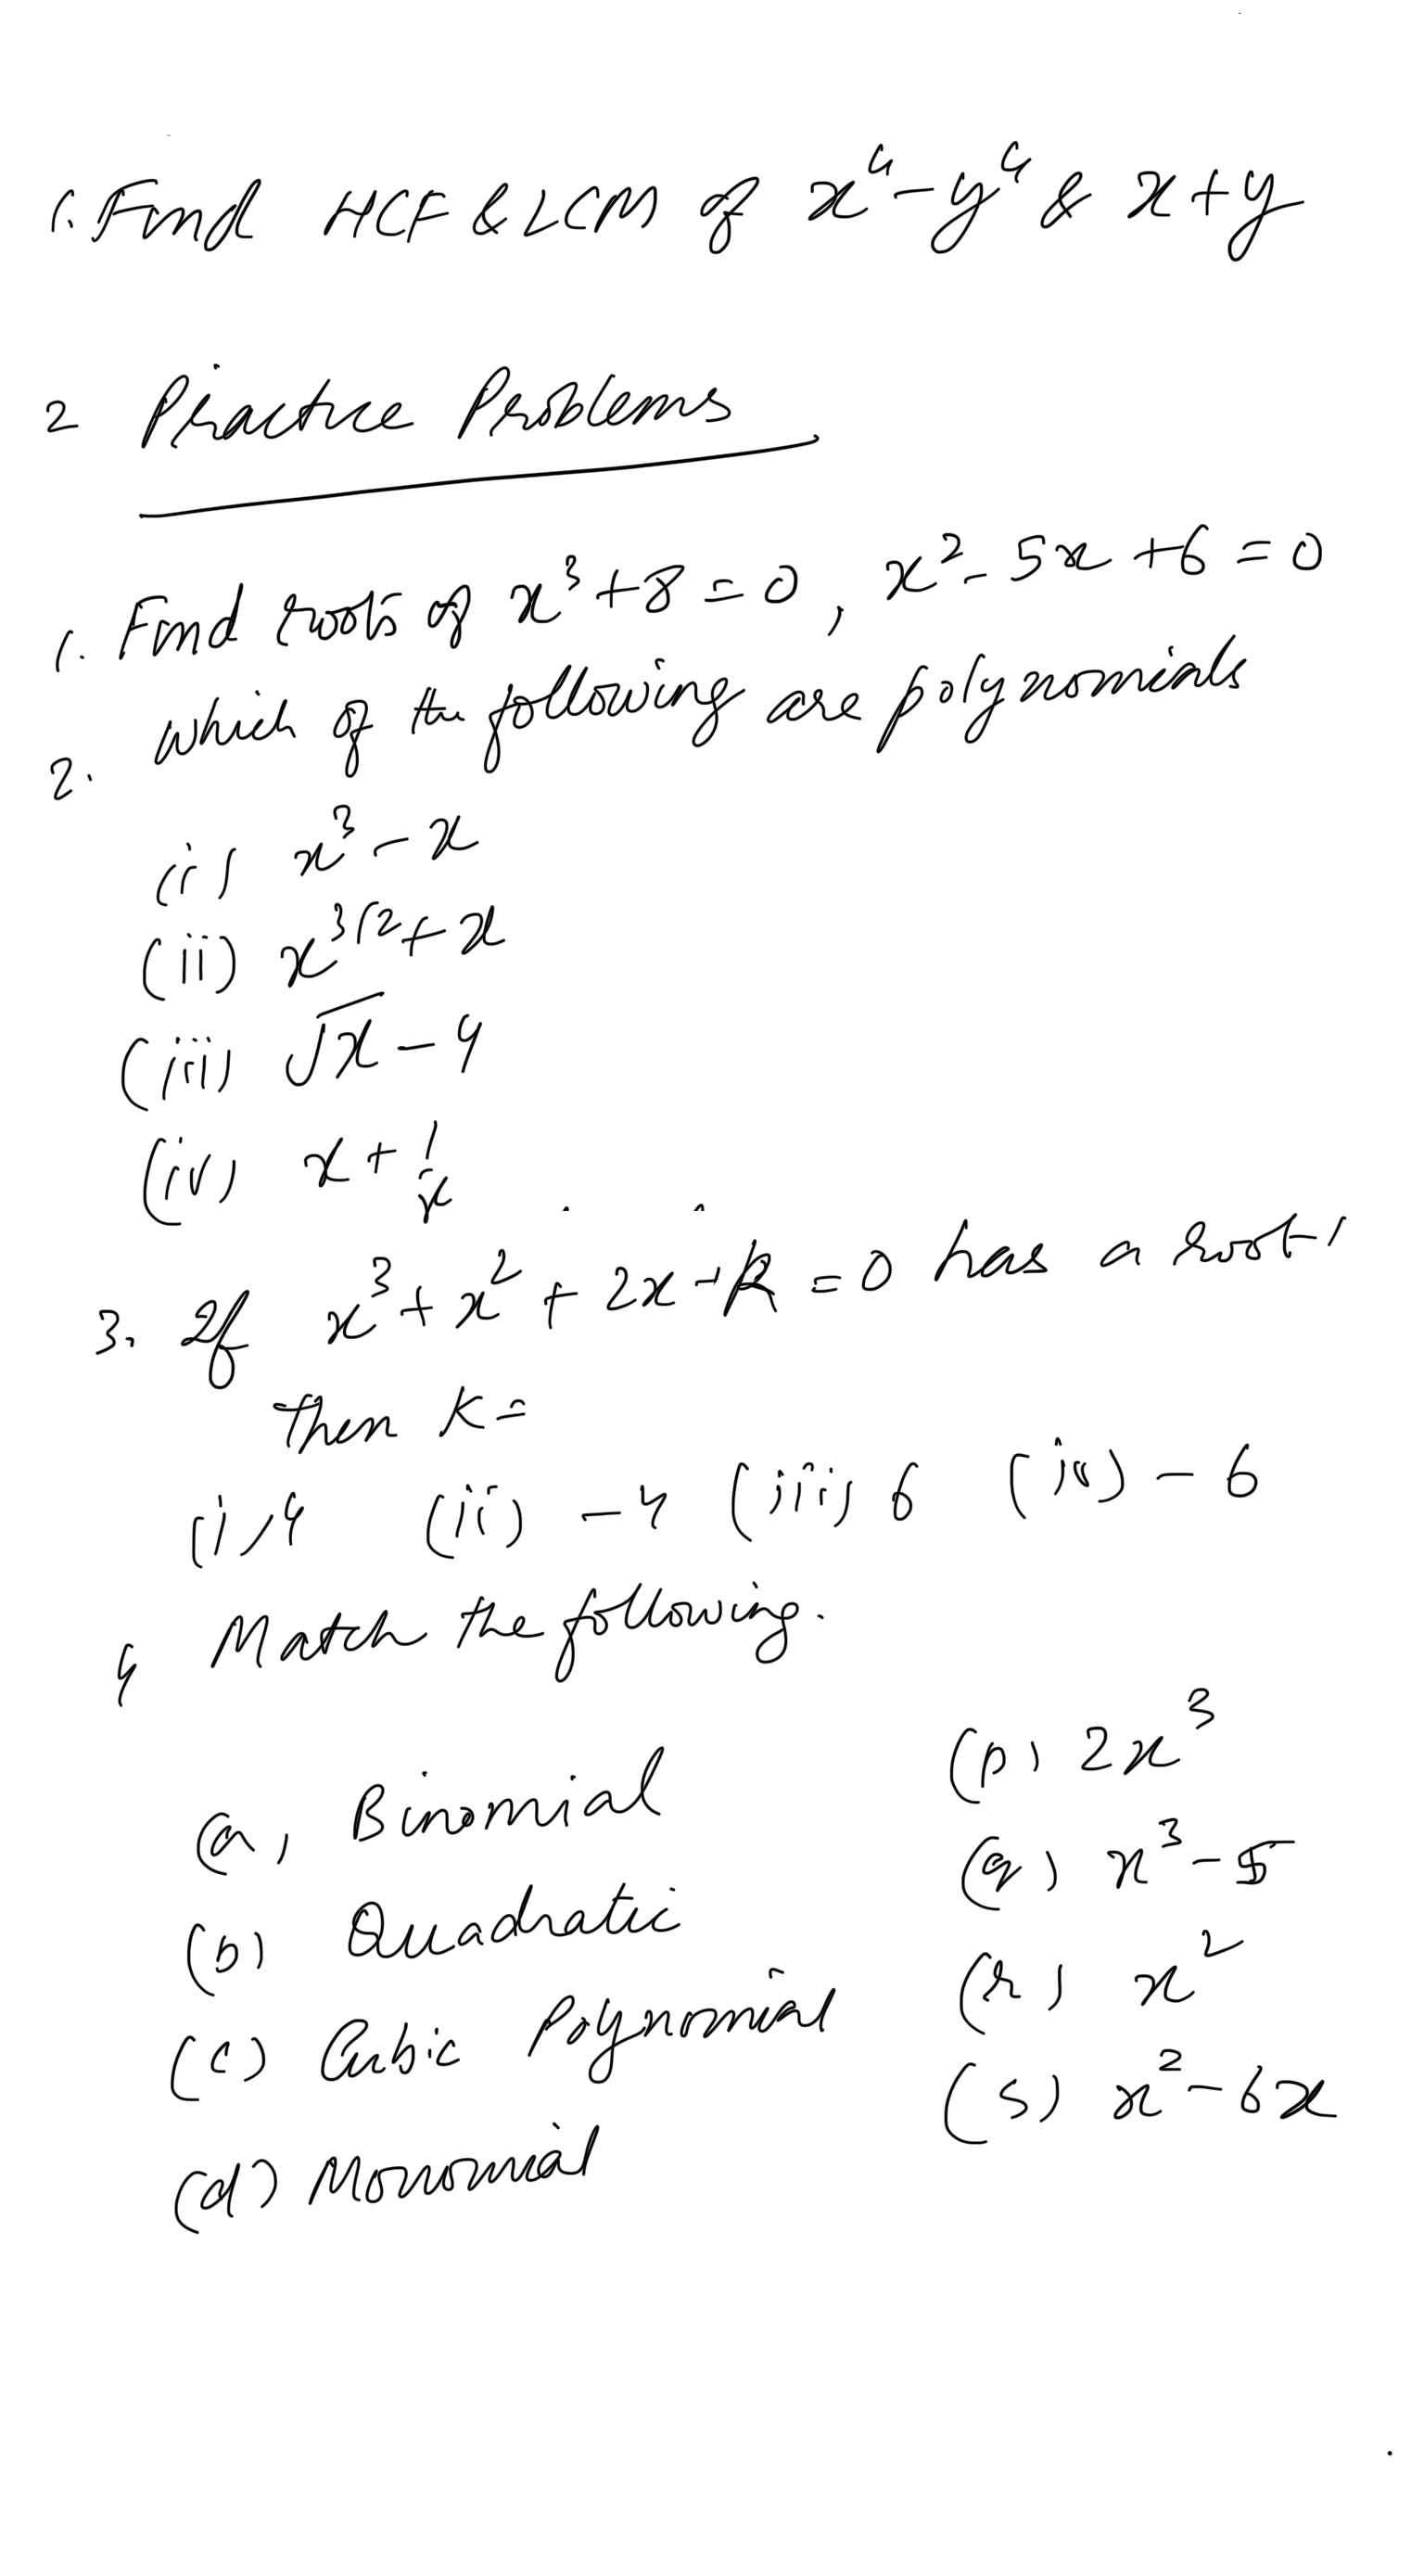 1. Find HCF & LCM of x⁴-y⁴ & x+y
2 Practice Problems
1. Find roots of x³+8=0, x²-5x+6=0
2. which of the following are polynomials
(i) x³-x
(ii) x^3/2+x
(iii) √x-4
(iv) x+1/x
3. If x³+x²+2x+k=0 has a root 1
then k=
(i) 4 (ii) -4 (iii) 6 (iv) -6
4 Match the following.
(a) Binomial (p) 2x³
(b) Quadratic (q) x³-5
(c) Cubic Polynomial (r) x²
(d) Monomial (s) x²-6x